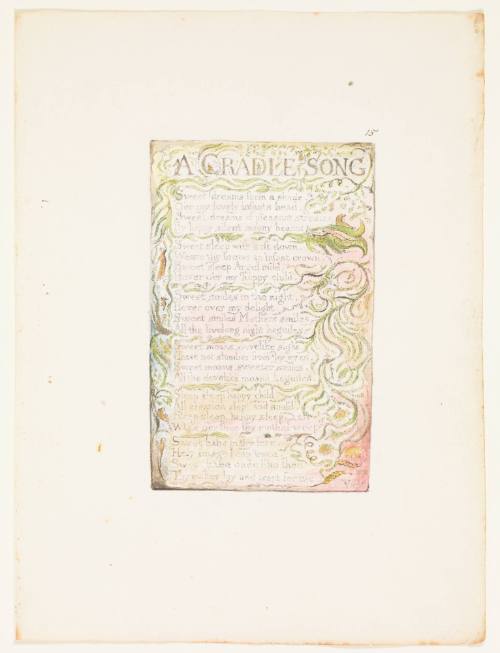 15
A CRADLE SONG
Sweet dreams form a shade
O'er my lovely infants head
Sweet dreams of pleasant streams
By happy silent moony beams
Sweet sleep with soft down
Weave thy brows an infant crown
Sweet sleep Angel mild
Hover o'er my happy child
Sweet smiles in the night
Hover over my delight
Sweet smiles Mothers smiles
All the livelong night beguiles
Sweet moans dovelike sighs
Chase not slumber from thy eyes
Sweet moans sweeter smiles
All the dovelike moans beguiles
Sleep sleep happy child
All creation slept and smil'd
Sleep sleep, happy sleep
While o'er thee thy mother weep
Sweet babe in thy face
Holy image I can trace
Sweet babe once like thee
Thy maker lay and wept for me